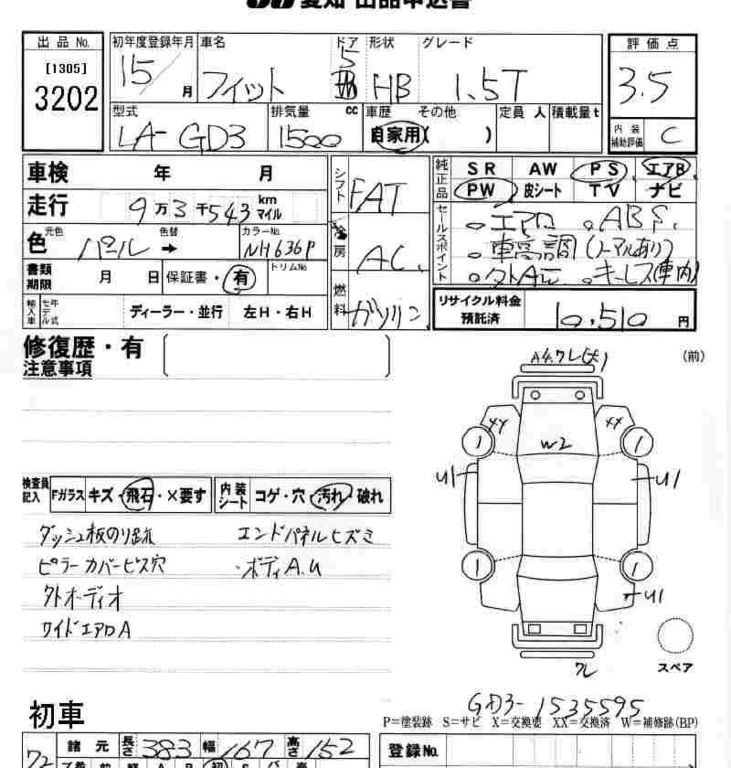 愛知 出品申込書
出品No. 初年度登録年月 車名 ドア 形状 グレード 評価点
[1305] 3202 15 月 フィット 5 HB 1.5T 3.5
型式 排気量 cc 車歴 その他 定員 人 積載量t 内装補助評価
LA-GD3 1500 自家用( ) C
車検 年 月 シフト FAT 純正品 SR AW PS エアB
PW 皮シート TV ナビ
走行 9万3千543 km マイル
セールスポイント ○エアロ ○ABS.
色 元色 パール 色替 → カラーNo. NH636P 冷房 AC. ○車高調(ノーマルあり)
書類期限 月 日 保証書・有 トリムNo. ○外AW ○キーレス(車内)
輸入車 モデル年式 ディーラー・並行 左H・右H 燃料 ガソリン リサイクル料金預託済 10,510 円
修復歴・有
注意事項
A4.ワレ(大) (前)
XY XX
1 W2 1
U1 U1
検査員記入 Fガラス キズ・飛石・×要す 内装シート コゲ・穴・汚れ・破れ
ダッシュ板のり跡 エンドパネルヒズミ
ピラーカバービス穴 ・ボディA.U
外オーディオ 1 1
U1
ワイドエアロA
ワレ スペア
GD3-1535595
初車 P=塗装跡 S=サビ X=交換要 XX=交換済 W=補修跡(BP)
諸元 長さ 383 幅 167 高さ 152 登録No.
72